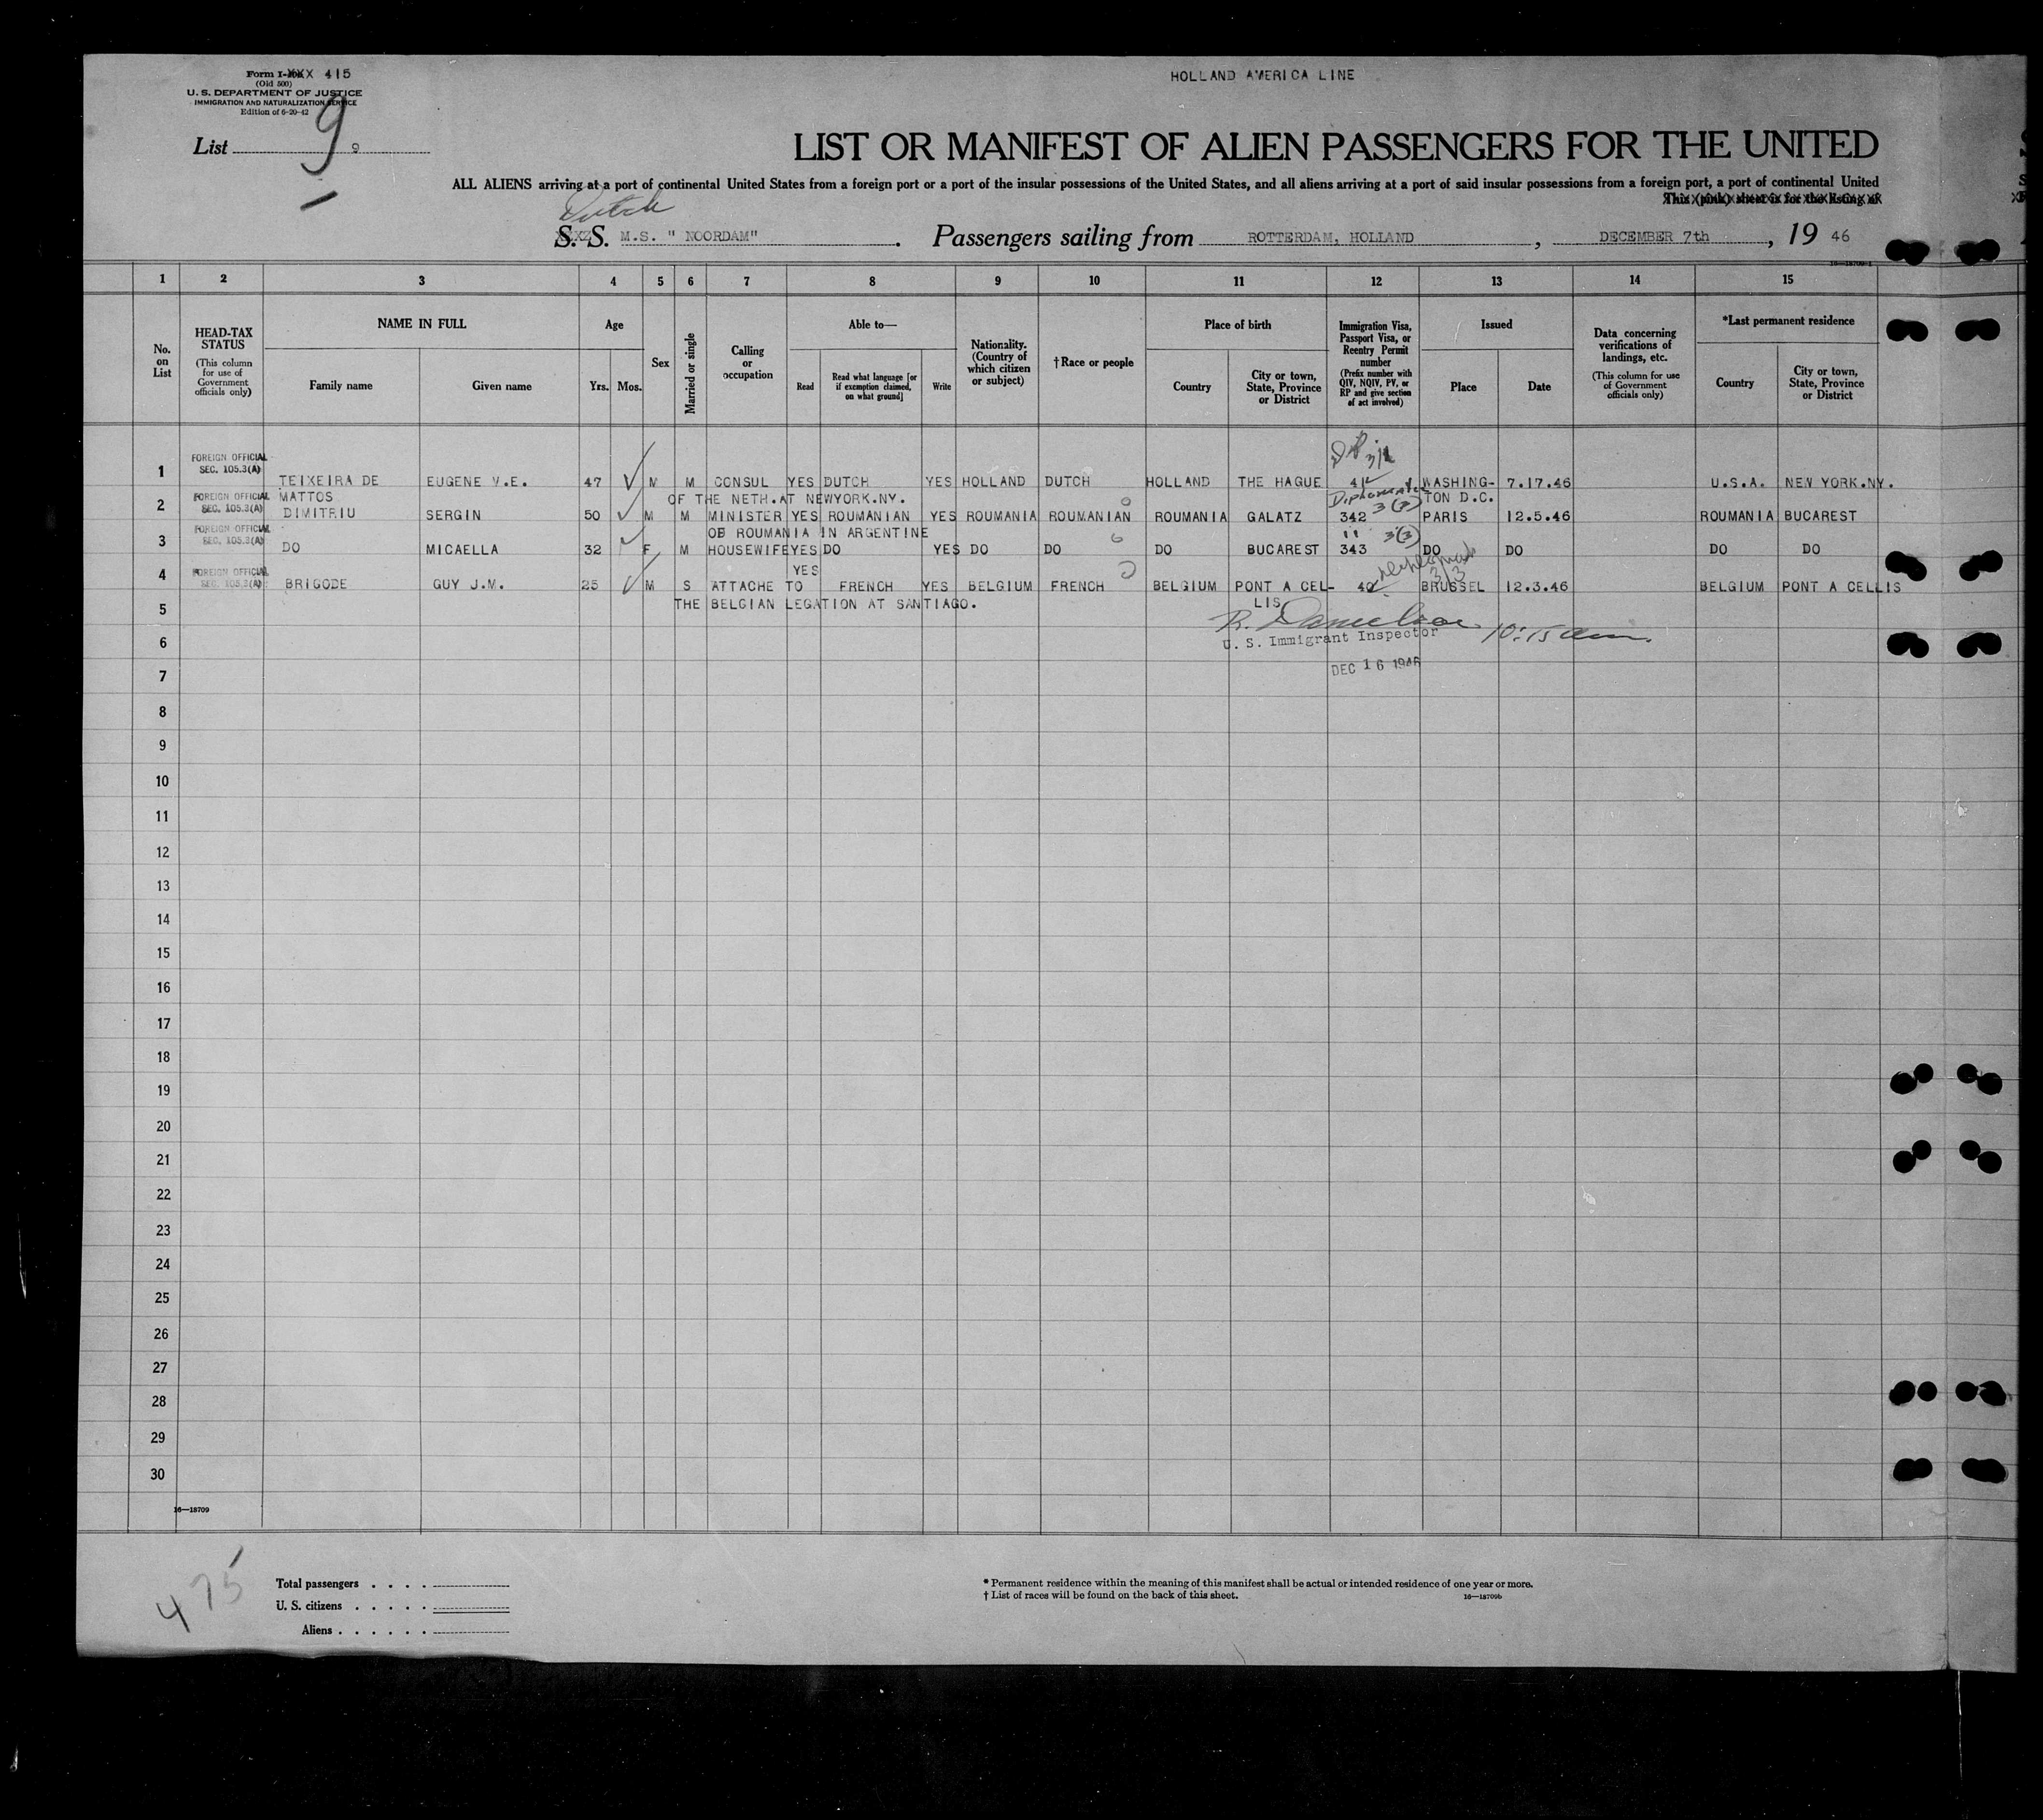 Form I- XXX 415
HOLLAND AMERICA LINE
(Old 500)
U. S. DEPARTMENT OF JUSTICE
IMMIGRATION AND NATURALIZATION SERVICE
Edition of 6-20-42
9
List 9
LIST OR MANIFEST OF ALIEN PASSENGERS FOR THE UNITED
ALL ALIENS arriving at a port of continental United States from a foreign port or a port of the insular possessions of the United States, and all aliens arriving at a port of said insular possessions from a foreign port, a port of continental United
This (pink) sheet is for the listing of
Dutch
S. S. M.S. " NOORDAM" . Passengers sailing from ROTTERDAM, HOLLAND , DECEMBER 7th , 19 46
1 2 3 4 5 6 7 8 9 10 11 12 13 14 15
No. on List
HEAD-TAX STATUS
(This column for use of Government officials only)
NAME IN FULL
Family name Given name
Age
Yrs. Mos.
Sex
Married or single
Calling or occupation
Able to—
Read Read what language [or if exemption claimed, on what ground] Write
Nationality. (Country of which citizen or subject)
†Race or people
Place of birth
Country City or town, State, Province or District
Immigration Visa, Passport Visa, or Reentry Permit number
(Prefix number with QIV, NQIV, PV, or RP and give section of act involved)
Issued
Place Date
Data concerning verifications of landings, etc.
(This column for use of Government officials only)
*Last permanent residence
Country City or town, State, Province or District
FOREIGN OFFICIAL
SEC. 105.3(A)
1 TEIXEIRA DE EUGENE V.E. 47 M M CONSUL YES DUTCH YES HOLLAND DUTCH HOLLAND THE HAGUE WASHING- 7.17.46 U.S.A. NEW YORK.NY.
MATTOS OF THE NETH.AT NEWYORK.NY. TON D.C.
FOREIGN OFFICIAL
SEC. 105.3(A)
Diplomatic 3(3)
2 DIMITRIU SERGIN 50 M M MINISTER YES ROUMANIAN YES ROUMANIA ROUMANIAN ROUMANIA GALATZ 342 PARIS 12.5.46 ROUMANIA BUCAREST
OF ROUMANIA IN ARGENTINE
FOREIGN OFFICIAL
SEC. 105.3(A)
" 3(3)
3 DO MICAELLA 32 F M HOUSEWIFE YES DO YES DO DO DO BUCAREST 343 DO DO DO DO
FOREIGN OFFICIAL
SEC. 105.3(A)
YES
4 BRIGODE GUY J.M. 25 M S ATTACHE TO FRENCH YES BELGIUM FRENCH BELGIUM PONT A CEL- BRUSSEL 12.3.46 BELGIUM PONT A CELLIS
THE BELGIAN LEGATION AT SANTIAGO. LIS
5
R. Danielson 10:15 am.
U. S. Immigrant Inspector
6
DEC 16 1946
7
8
9
10
11
12
13
14
15
16
17
18
19
20
21
22
23
24
25
26
27
28
29
30
16—18709
475
Total passengers . . . .
U. S. citizens . . . . .
Aliens . . . . . .
* Permanent residence within the meaning of this manifest shall be actual or intended residence of one year or more.
† List of races will be found on the back of this sheet.
16—18709b